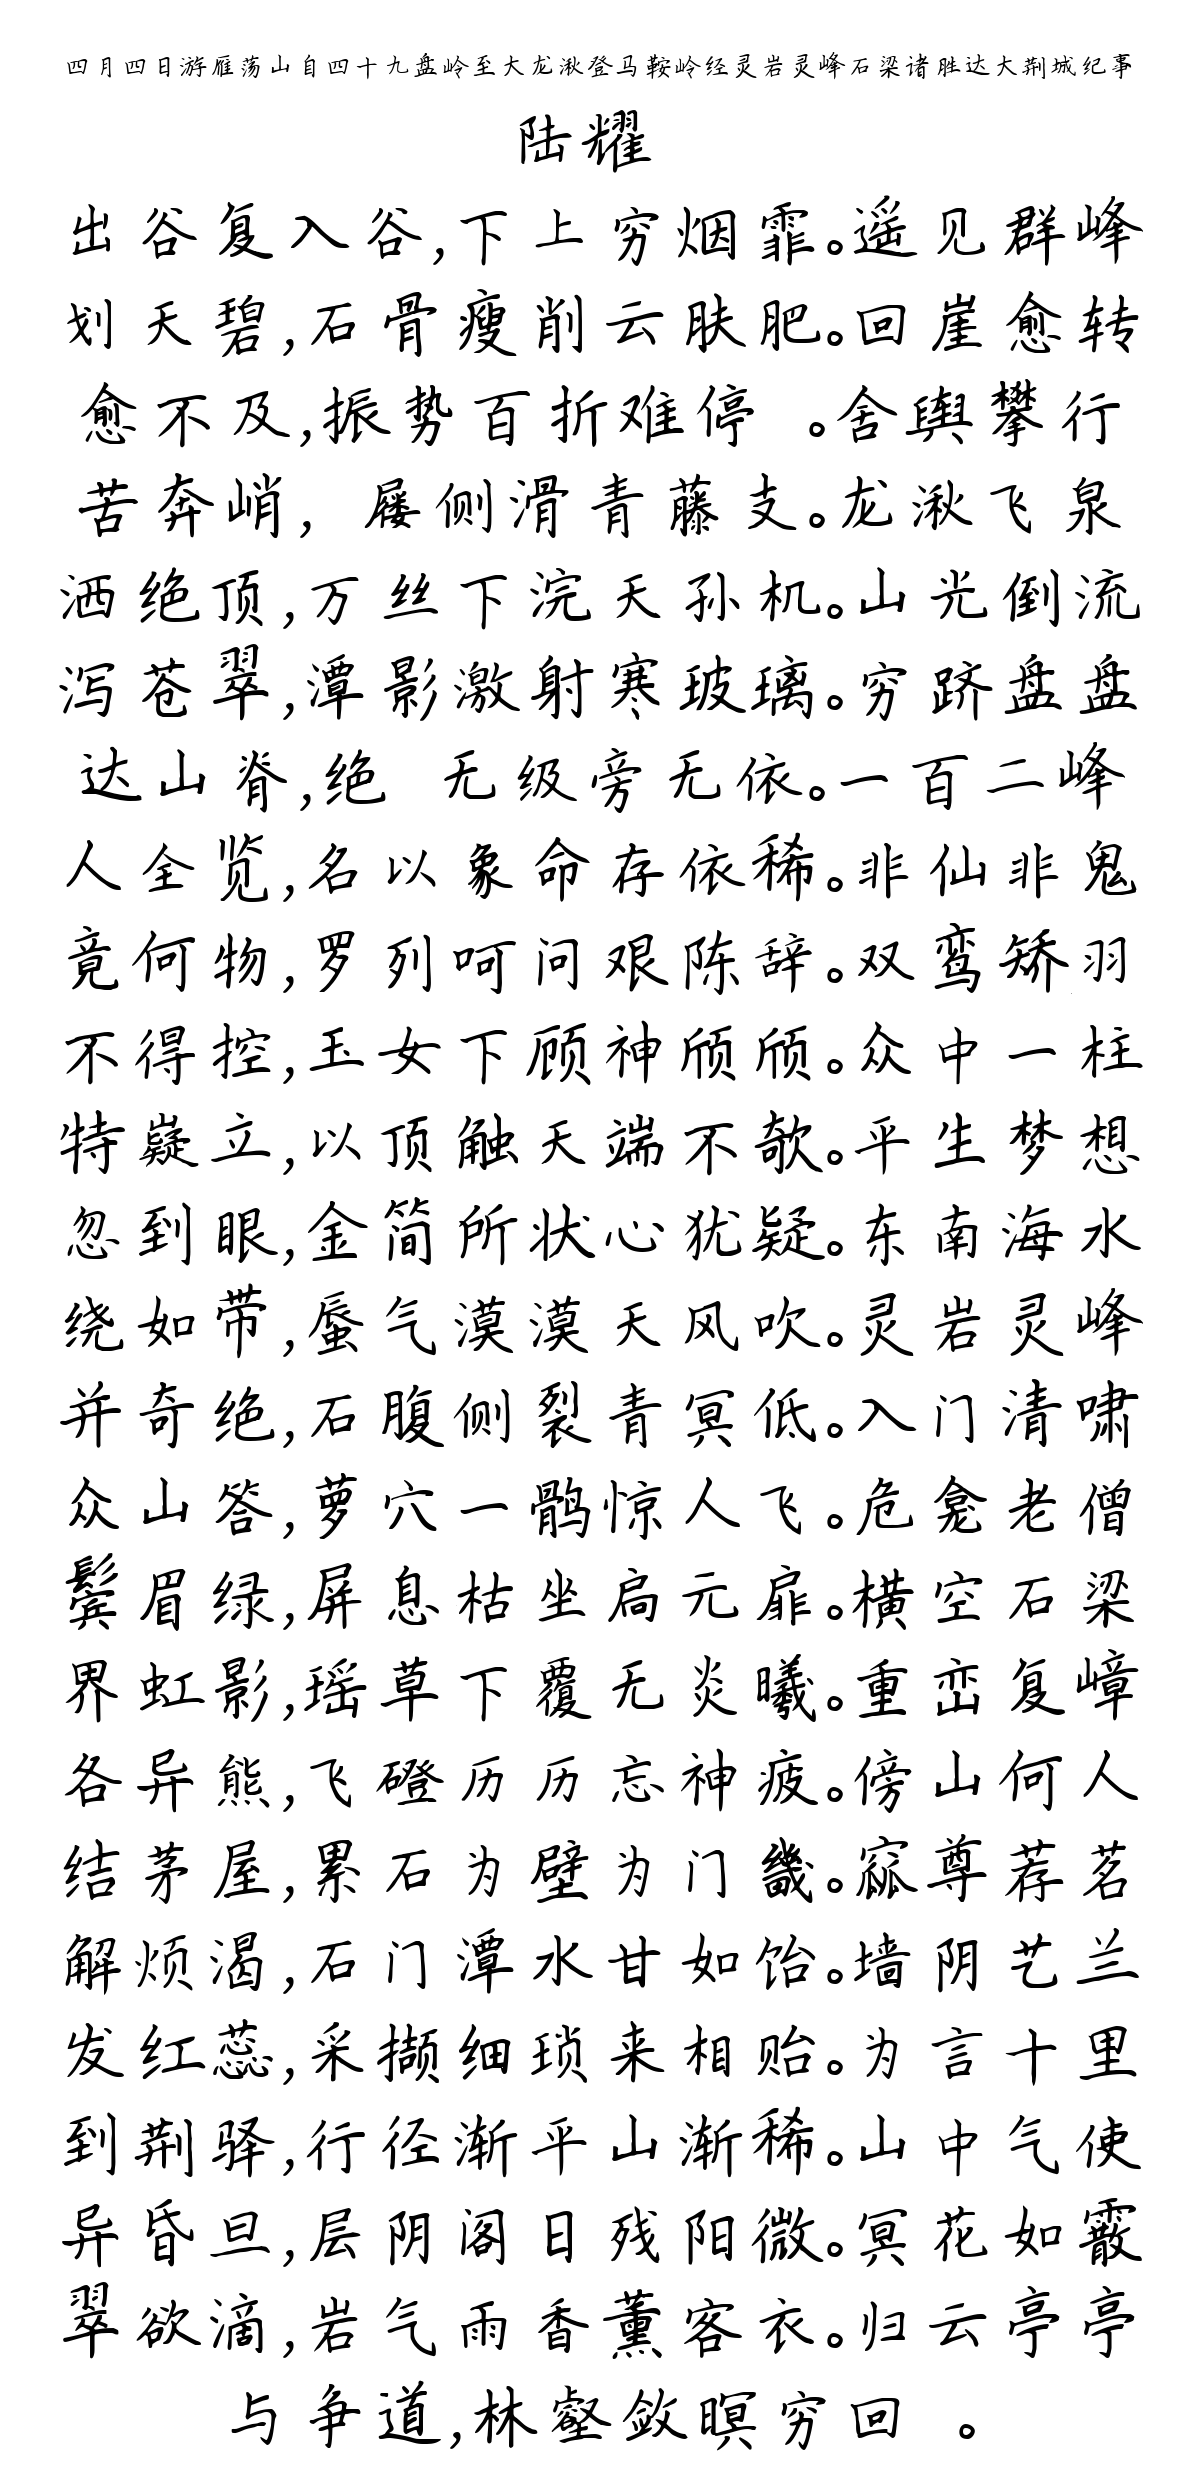 四月四日游雁荡山自四十九盘岭至大龙湫登马鞍岭经灵岩灵峰石梁诸胜达大荆城纪事
陆耀
出谷复入谷,下上穷烟霏。遥见群峰
划天碧,石骨瘦削云肤肥。回崖愈转
愈不及,振势百折难停 。舍舆攀行
苦奔峭, 屦侧滑青藤支。龙湫飞泉
洒绝顶,万丝下浣天孙机。山光倒流
泻苍翠,潭影激射寒玻璃。穷跻盘盘
达山脊,绝 无级旁无依。一百二峰
人全览,名以象命存依稀。非仙非鬼
竟何物,罗列呵问艰陈辞。双鸾矫羽
不得控,玉女下顾神颀颀。众中一柱
特嶷立,以顶触天端不欹。平生梦想
忽到眼,金简所状心犹疑。东南海水
绕如带,蜃气漠漠天风吹。灵岩灵峰
并奇绝,石腹侧裂青冥低。入门清啸
众山答,萝穴一鹘惊人飞。危龛老僧
鬓眉绿,屏息枯坐扃元扉。横空石梁
界虹影,瑶草下覆无炎曦。重峦复嶂
各异熊,飞磴历历忘神疲。傍山何人
结茅屋,累石为壁为门畿。窊尊荐茗
解烦渴,石门潭水甘如饴。墙阴艺兰
发红蕊,采撷细琐来相贻。为言十里
到荆驿,行径渐平山渐稀。山中气使
异昏旦,层阴阁日残阳微。冥花如霰
翠欲滴,岩气雨香薰客衣。归云亭亭
与争道,林壑敛暝穷回 。